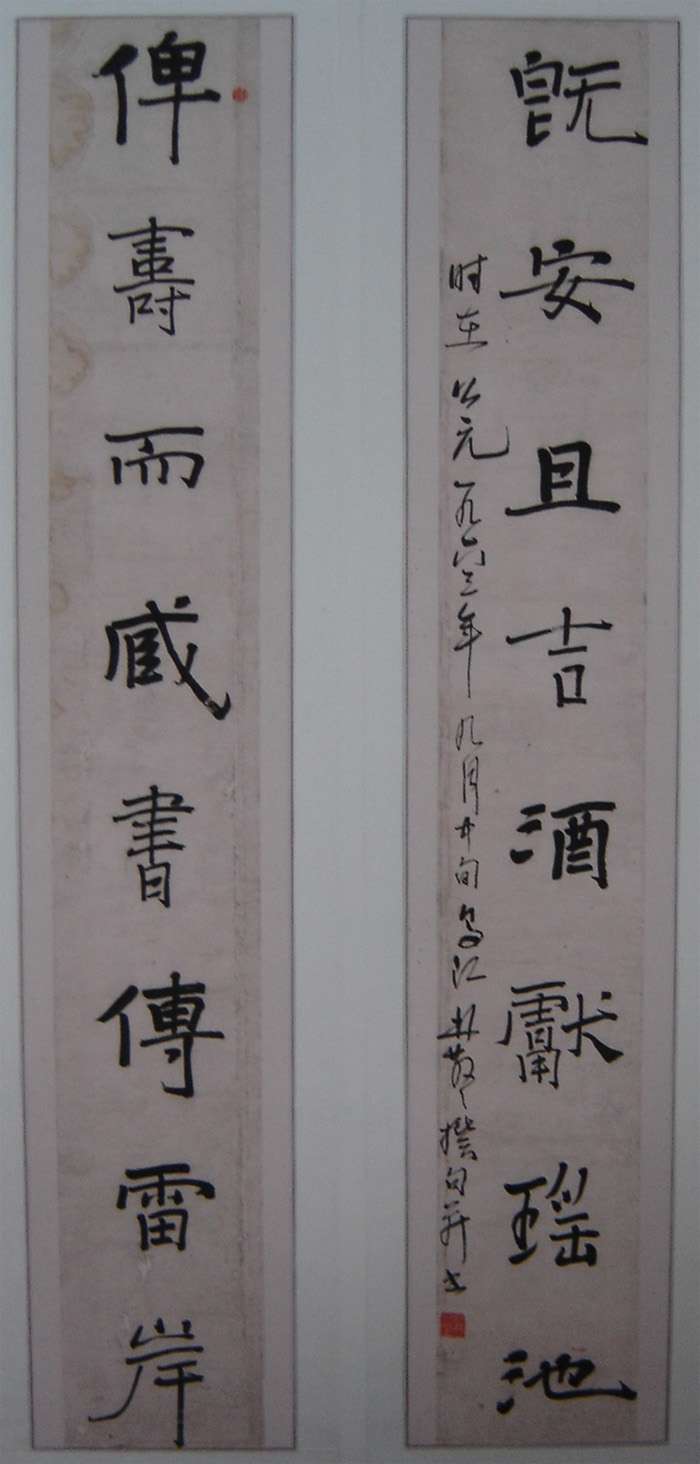 既安且吉酒獻瑶池
时在公元一九六三年九月中旬乌江林散之撰句并书
俾壽而臧書傳雷岸